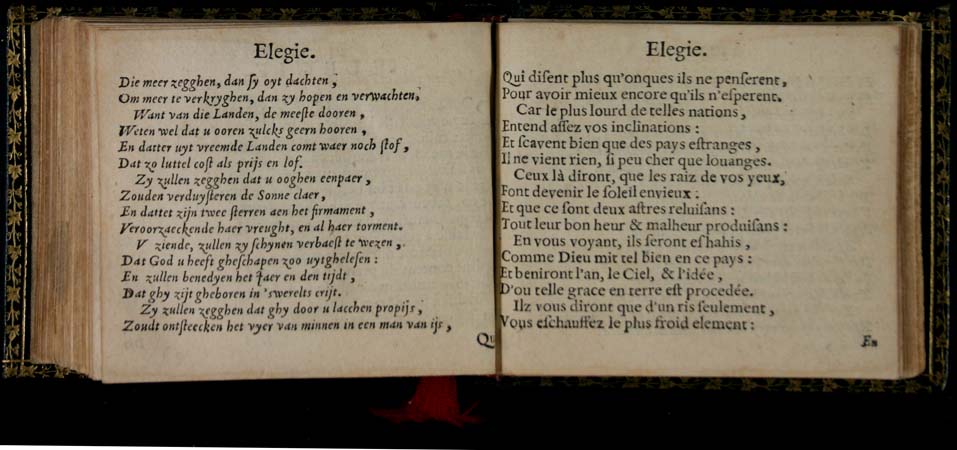 Elegie.
Die meer zegghen, dan ſy oyt dachten,
Om meer te verkryghen, dan zy hopen en verwachten.
Want van die Landen, de meeſte dooren,
Weten wel dat u ooren zulcks geern hooren,
En datter uyt vreemde Landen comt waer noch ſtof,
Dat zo luttel coſt als prijs en lof.
Zy zullen zegghen dat u ooghen eenpaer,
Zouden verduyſteren de Sonne claer,
En dattet zijn twee ſterren aen het firmament,
Veroorzaeckende haer vreught, en al haer torment.
V ziende, zullen zy ſchynen verbaeſt te wezen,
Dat God u heeft gheſchapen zoo uytgheleſen:
En zullen benedyen het Jaer en den tijdt,
Dat ghy zijt gheboren in 'swerelts crijt.
Zy zullen zegghen dat ghy door u lacchen propijs,
Zoudt ontſteecken het vyer van minnen in een man van ijs,
Qui
Elegie.
Qui diſent plus qu'onques ils ne penſerent,
Pour avoir mieux encore qu'ils n'eſperent.
Car le plus lourd de telles nations,
Entend aſſez vos inclinations:
Et ſcavent bien que des pays eſtranges,
Il ne vient rien, ſi peu cher que louanges.
Ceux là diront, que les raiz de vos yeux,
Font devenir le ſoleil envieux:
Et que ce ſont deux aſtres reluiſans:
Tout leur bon heur & malheur produiſans:
En vous voyant, ils ſeront eſbahis,
Comme Dieu mit tel bien en ce pays:
Et beniront l'an, le Ciel, & l'idée,
D'ou telle grace en terre eſt procedée.
Ilz vous diront que d'un ris ſeulement,
Vous eſchauffez le plus froid element:
En